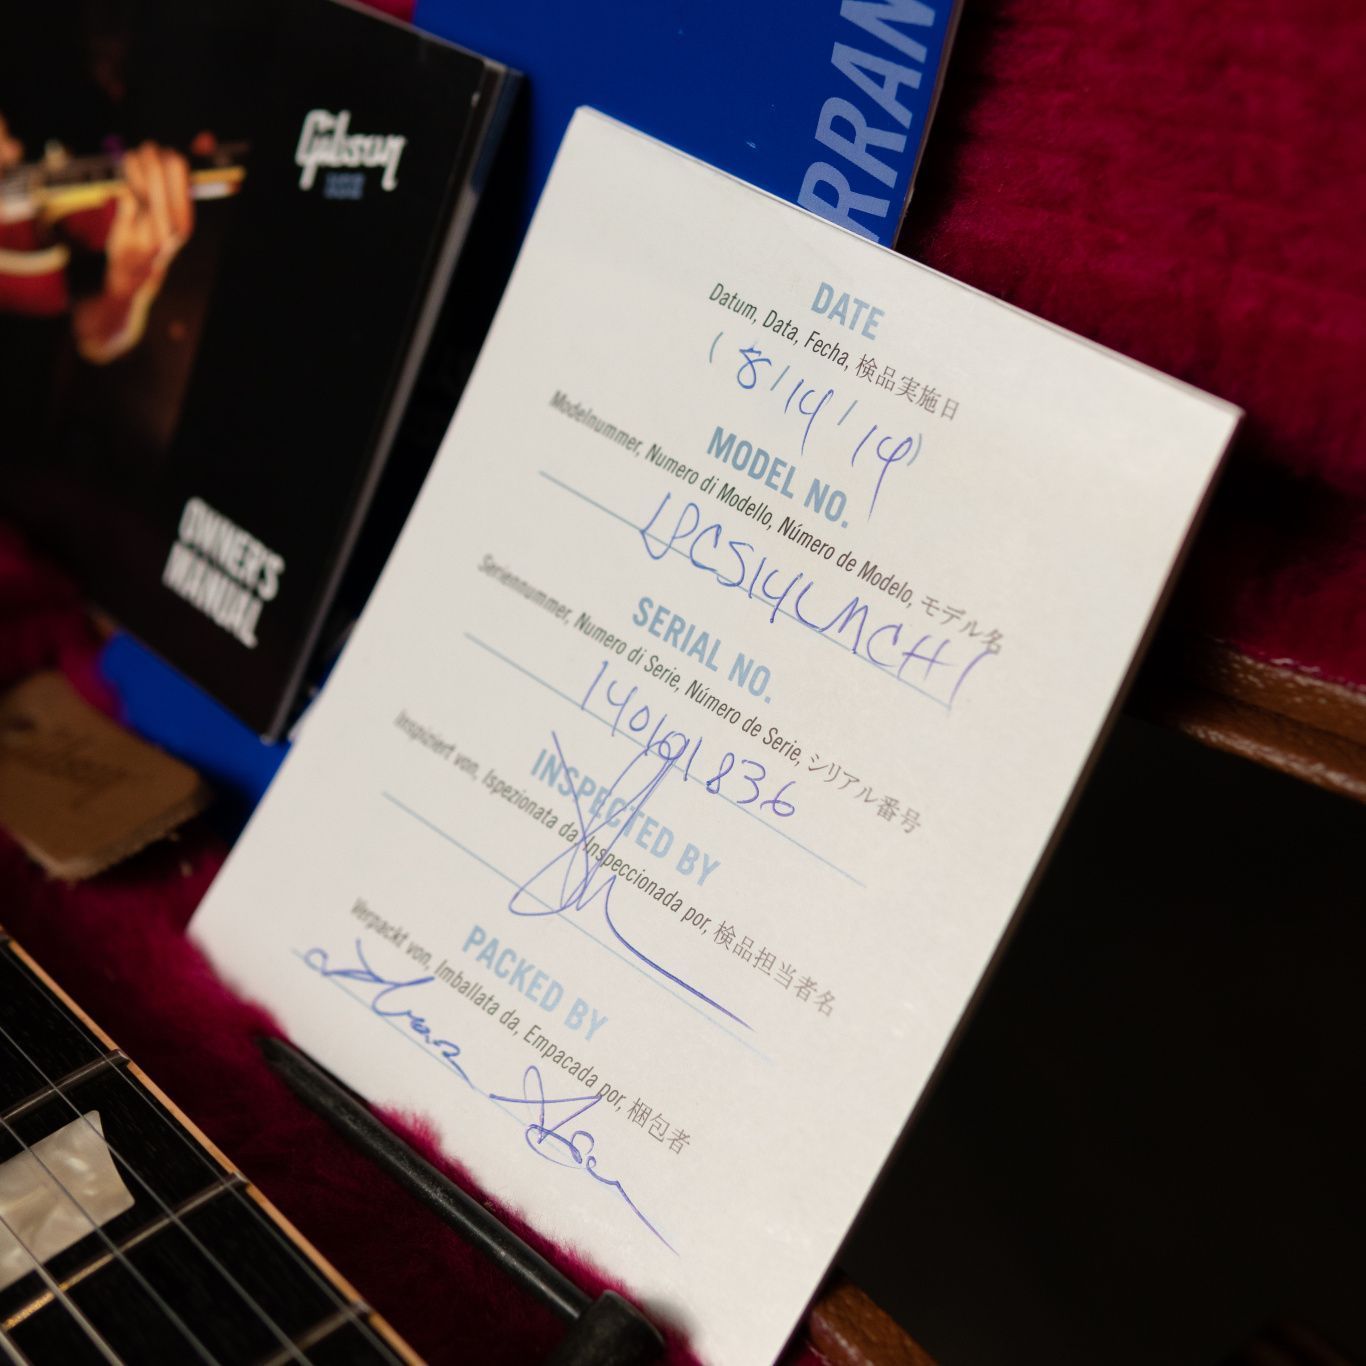 Gibson
USA
OWNER'S
MANUAL
RRAN
DATE
Datum, Data, Fecha, 検品実施日
( 8/14/14)
MODEL NO.
Modelnummer, Numero di Modello, Número de Modelo, モデル名
LPCS14LMCH1
SERIAL NO.
Seriennummer, Numero di Serie, Número de Serie, シリアル番号
140101836
INSPECTED BY
Inspiziert von, Ispezionata da, Inspeccionada por, 検品担当者名
PACKED BY
Verpackt von, Imballata da, Empacada por, 梱包者